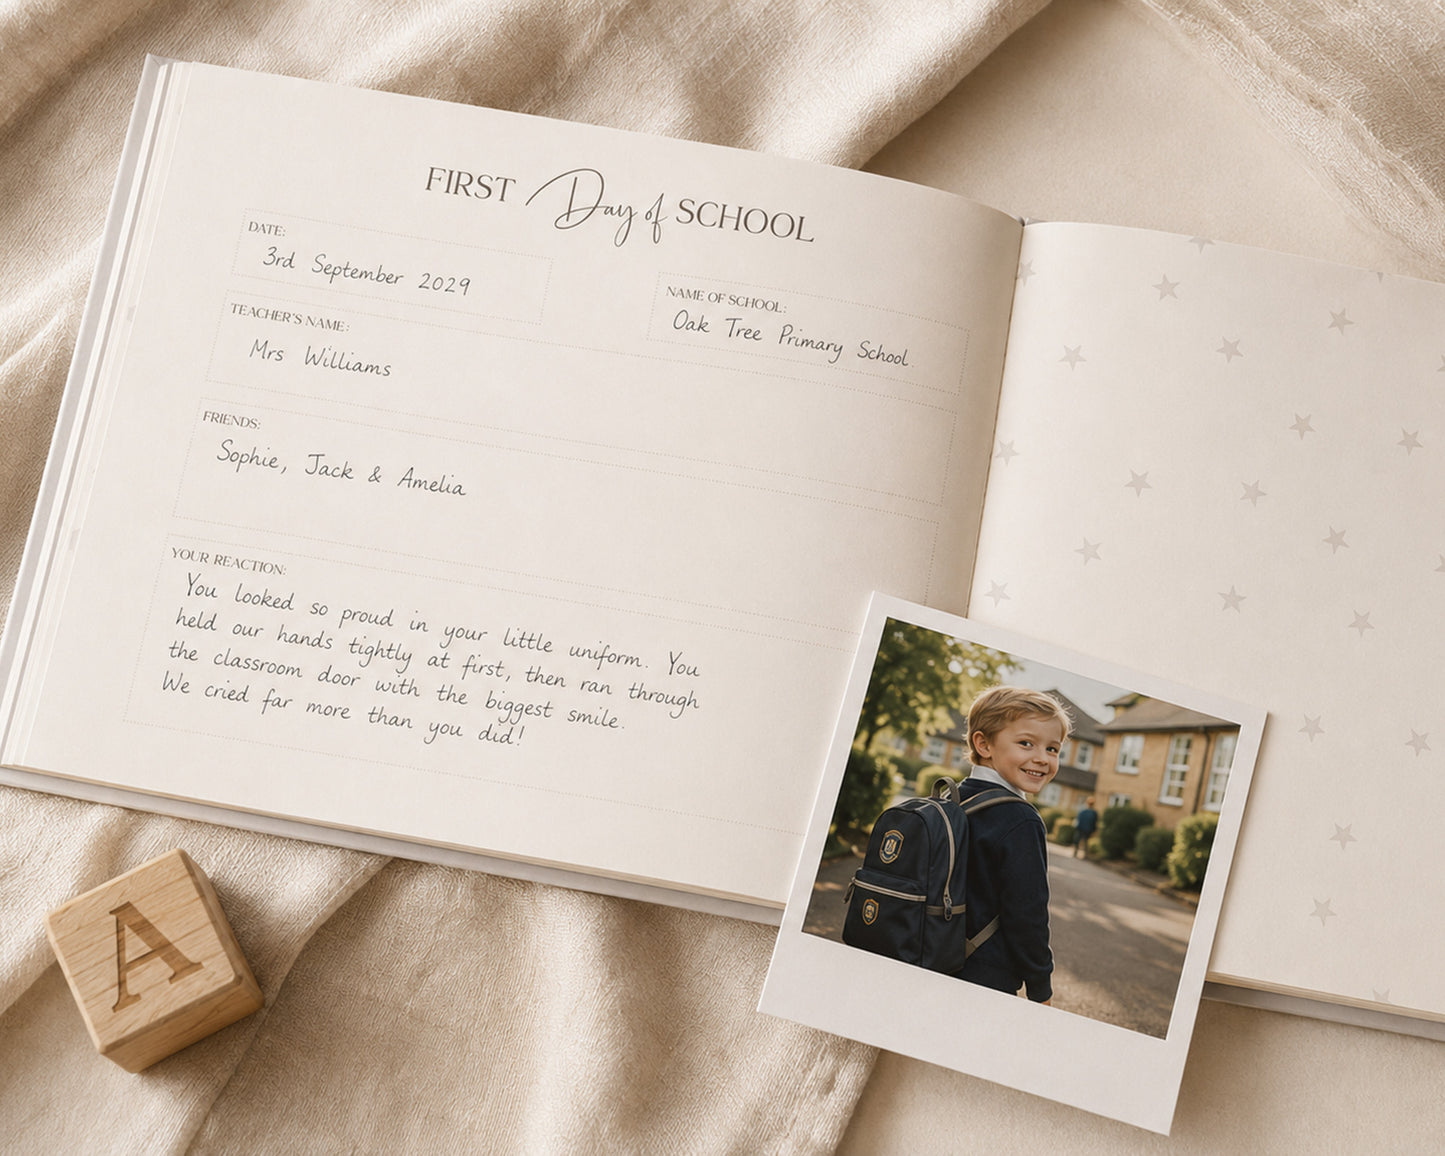 FIRST Day of SCHOOL
DATE:
3rd September 2029
NAME OF SCHOOL:
Oak Tree Primary School
TEACHER'S NAME:
Mrs Williams
FRIENDS:
Sophie, Jack & Amelia
YOUR REACTION:
You looked so proud in your little uniform. You
held our hands tightly at first, then ran through
the classroom door with the biggest smile.
We cried far more than you did!
A